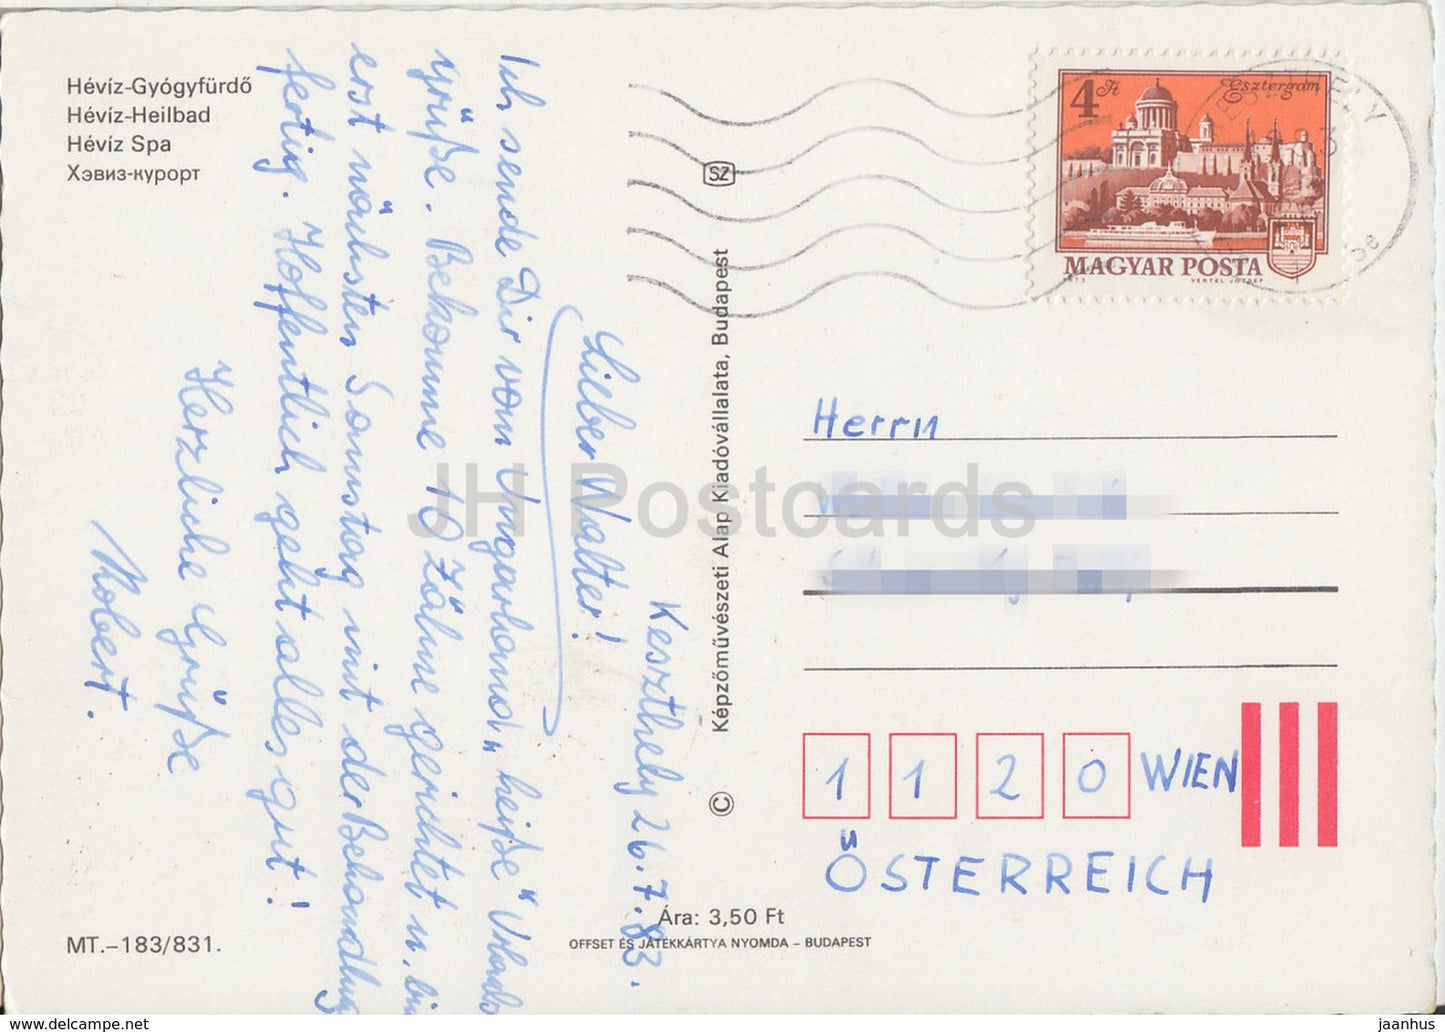 Hévíz-Gyógyfürdő
Hévíz-Heilbad
Hévíz Spa
Хэвиз-курорт
Keszthely 26.7.83.
Lieber Walter!
Ich sende Dir vom Ungarland „heiße“ Urlaubs
grüße. Bekomme 10 Zähne gerichtet u. bin
erst nächsten Samstag mit der Behandlug
fertig. Hoffentlich geht alles gut!
Herzliche Grüße
Robert.
MT.–183/831.
Képzőművészeti Alap Kiadóvállalata, Budapest
©
SZ
Ára: 3,50 Ft
OFFSET ÉS JÁTEKKÁRTYA NYOMDA – BUDAPEST
4 Ft
Esztergom
MAGYAR POSTA
1973
VERTEL JÓZSEF
KESZTHELY
Herrn
1 1 2 0 WIEN
ÖSTERREICH
JH Postcards
www.delcampe.net
jaanhus